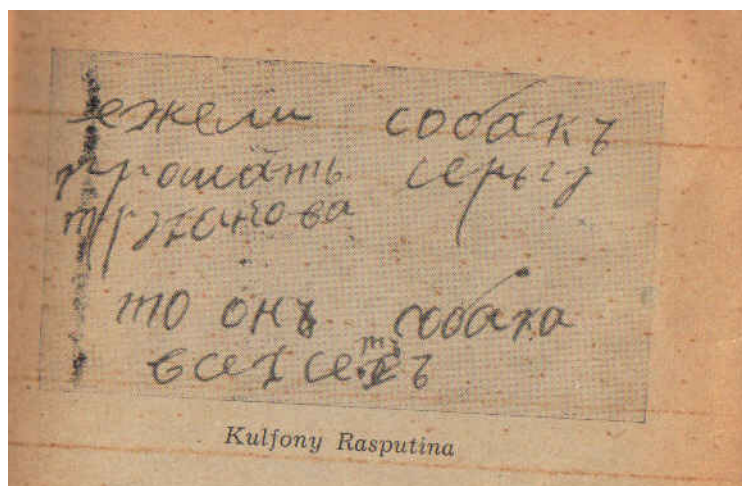 ежели собакъ
прошать серьгу
труханова
то онъ собака
всех
Kulfony Rasputina